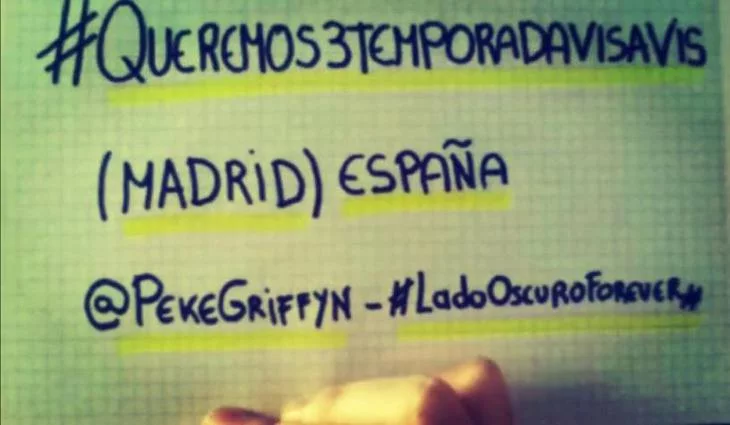 #QUEREMOS3TEMPORADAVISAVIS
(MADRiD) ESPAÑA
@PEKEGRiFFYN - #LadoOscuroForever#